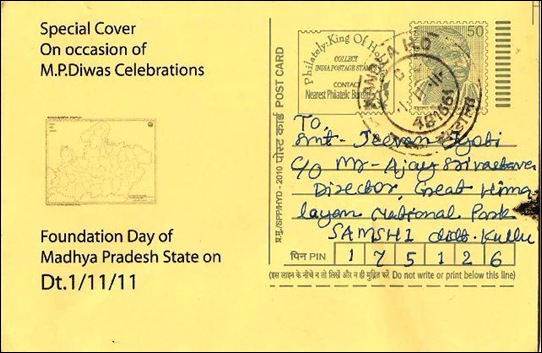 Special Cover
On occasion of
M.P.Diwas Celebrations
Foundation Day of
Madhya Pradesh State on
Dt.1/11/11
प्र.मु./SPP/HYD - 2010 पोस्ट कार्ड POST CARD
Philately:King Of Hobbies
COLLECT
INDIA POSTAGE STAMPS
CONTACT
Nearest Philatelic Bureau
50
KHANDWA H.O
481661
To,
Smt- Jeevan Jyoti
C/o Mr- Ajay Srivastava
Director, Great Hima
layan National Park
SAMSHI distt. Kullu
पिन PIN 1 7 5 1 2 6
(इस लाइन के नीचे न तो लिखें और न ही मुद्रित करें Do not write or print below this line)